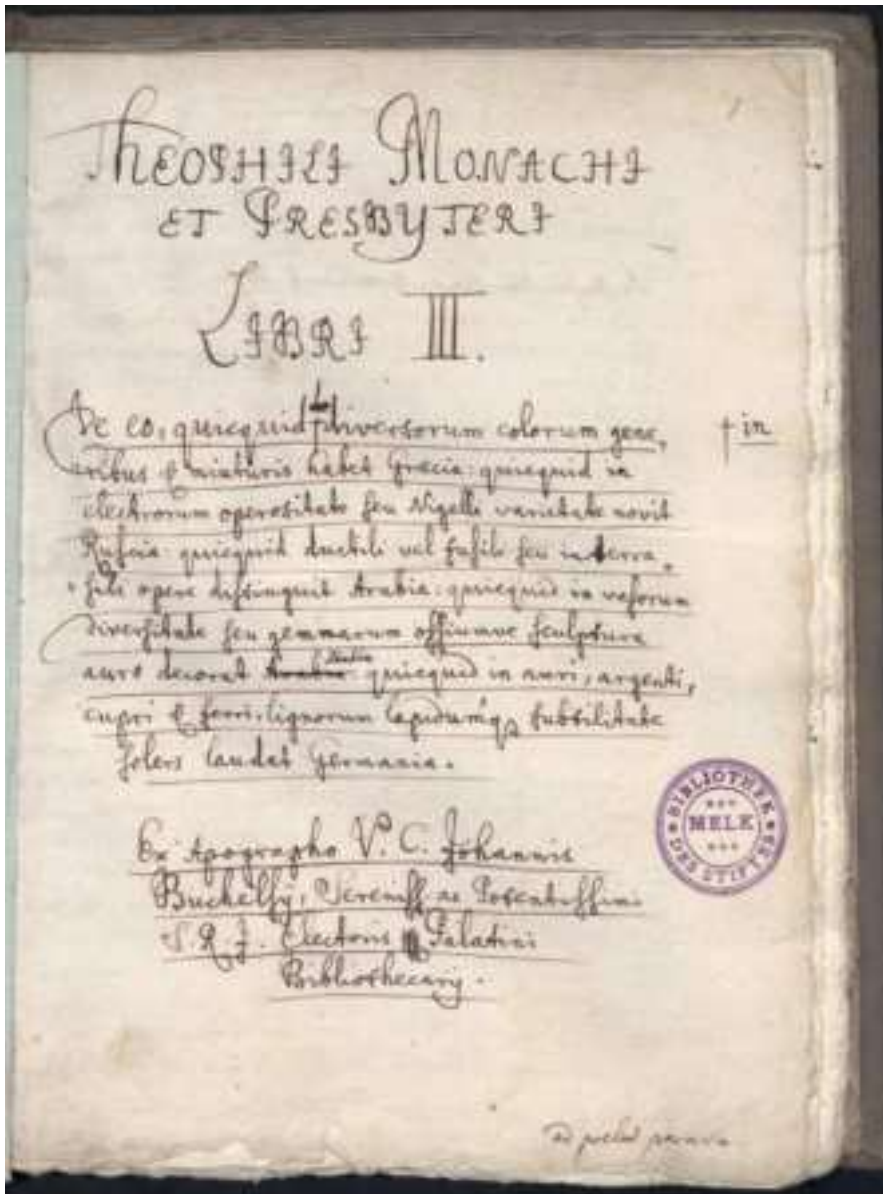 THEOPHILI MONACHI
ET PRESBYTERI
LIBRI III.
De eo, quicquid † diversorum colorum gene,
† in
ribus & mixturis habet Grecia: quicquid in
electrorum operositate seu Nigelli varietate novit
Ruscia: quicquid ductili vel fusili seu interra,
sili opere distinguit Arabia: quicquid in vasorum
diversitate seu gemmarum ossiumve sculptura
auro decorat Italia: quicquid in auri, argenti,
cupri & ferri, lignorum lapidumq, subtilitate
solers laudat Germania.
Ex Apographo V. C. Johannis
Buchelsij, Sereniss. ac Potentissimi
S. R. J. Electoris Palatini
Bibliothecarij.
BIBLIOTHEK
MELK
DES STIFTES